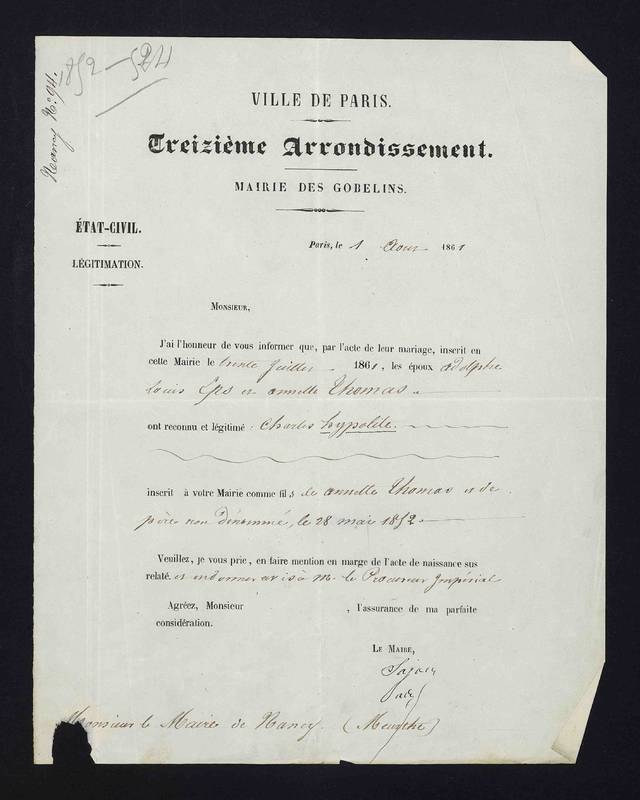 1852 — 524
Nancy No. 94.
VILLE DE PARIS.
Treizième Arrondissement.
MAIRIE DES GOBELINS.
ÉTAT-CIVIL.
LÉGITIMATION.
Paris, le 1 Aout 1861
MONSIEUR,
J'ai l'honneur de vous informer que, par l'acte de leur mariage, inscrit en
cette Mairie le trente Juillet 1861, les époux adolphe
Louis et annette Thomas.
ont reconnu et légitimé : Charles hypolite.
inscrit à votre Mairie comme fils de annette Thomas et de
père non dénommé, le 28 mai 1852
Veuillez, je vous prie, en faire mention en marge de l'acte de naissance sus
relaté. et en donner avis à Mr. le Procureur Impérial
Agréez, Monsieur , l'assurance de ma parfaite
considération.
LE MAIRE,
Monsieur le Maire de Nancy. (Meurthe)